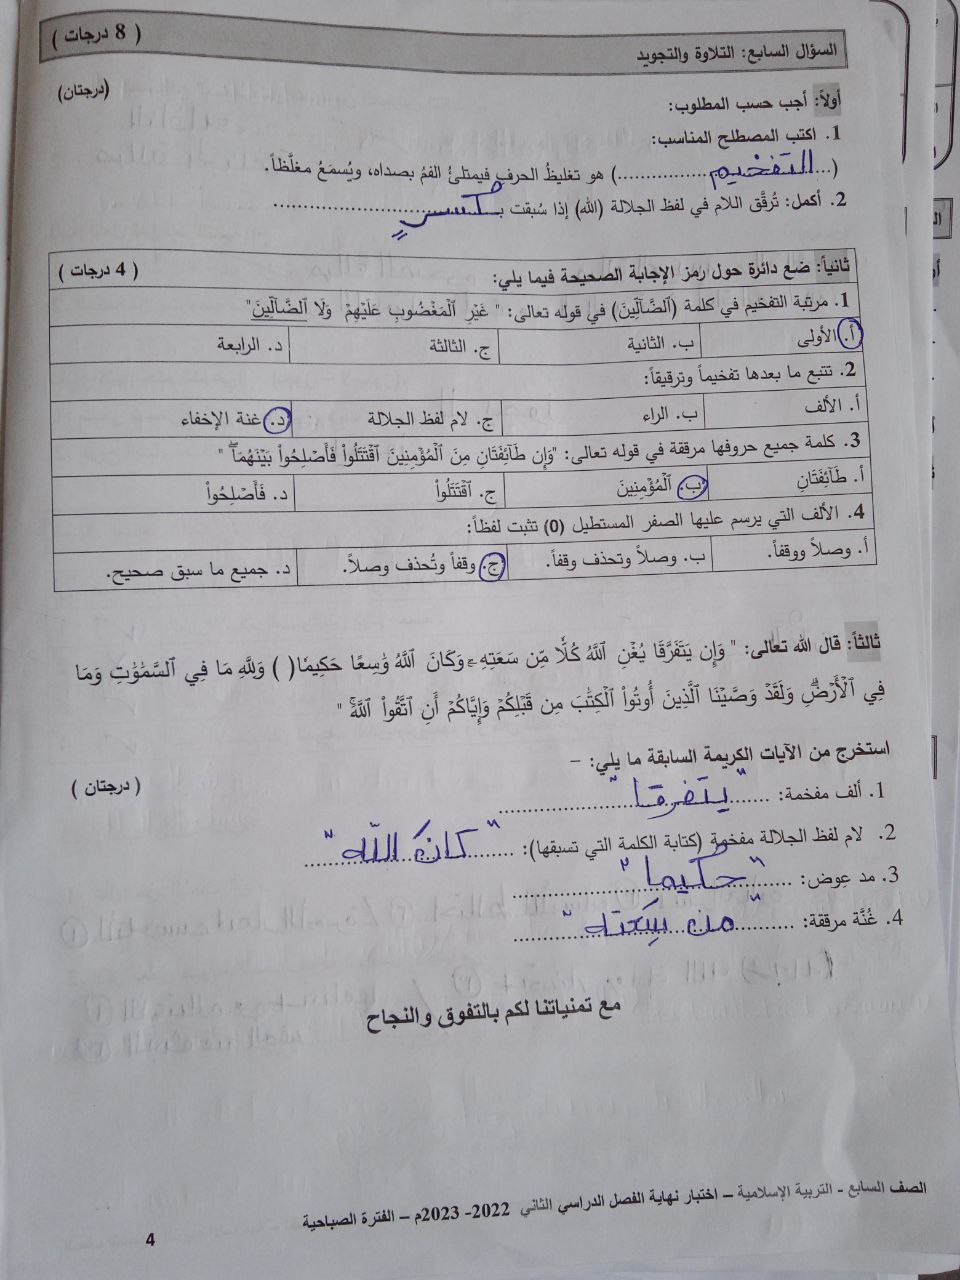 السؤال السابع: التلاوة والتجويد ( 8 درجات )
أولاً: أجب حسب المطلوب: (درجتان)
1. اكتب المصطلح المناسب:
(...التفخيم...) هو تغليظُ الحرفِ فيمتلئُ الفمُ بصداه، ويُسمَعُ مغلَّظاً.
2. أكمل: تُرقَّق اللام في لفظ الجلالة (الله) إذا سُبقت بـ كسرٍ
ثانياً: ضع دائرة حول رمز الإجابة الصحيحة فيما يلي: ( 4 درجات )
1. مرتبة التفخيم في كلمة (الضَّالِّينَ) في قوله تعالى: " غَيْرِ ٱلْمَغْضُوبِ عَلَيْهِمْ وَلَا ٱلضَّآلِّينَ "
أ. الأولى ب. الثانية ج. الثالثة د. الرابعة
2. تتبع ما بعدها تفخيماً وترقيقاً:
أ. الألف ب. الراء ج. لام لفظ الجلالة د. غنة الإخفاء
3. كلمة جميع حروفها مرققة في قوله تعالى: "وَإِن طَآئِفَتَانِ مِنَ ٱلْمُؤْمِنِينَ ٱقْتَتَلُوا۟ فَأَصْلِحُوا۟ بَيْنَهُمَا ۖ "
أ. طَآئِفَتَانِ ب. ٱلْمُؤْمِنِينَ ج. ٱقْتَتَلُوا۟ د. فَأَصْلِحُوا۟
4. الألف التي يرسم عليها الصفر المستطيل (0) تثبت لفظاً:
أ. وصلاً ووقفاً. ب. وصلاً وتحذف وقفاً. ج. وقفاً وتُحذف وصلاً. د. جميع ما سبق صحيح.
ثالثاً: قال الله تعالى: " وَإِن يَتَفَرَّقَا يُغْنِ ٱللَّهُ كُلًّا مِّن سَعَتِهِۦ وَكَانَ ٱللَّهُ وَٰسِعًا حَكِيمًا( ) وَلِلَّهِ مَا فِي ٱلسَّمَٰوَٰتِ وَمَا
فِي ٱلْأَرْضِ ۗ وَلَقَدْ وَصَّيْنَا ٱلَّذِينَ أُوتُوا۟ ٱلْكِتَٰبَ مِن قَبْلِكُمْ وَإِيَّاكُمْ أَنِ ٱتَّقُوا۟ ٱللَّهَ ۚ "
استخرج من الآيات الكريمة السابقة ما يلي: –
1. ألف مفخمة: "يتفرقا" ( درجتان )
2. لام لفظ الجلالة مفخمة (كتابة الكلمة التي تسبقها): "كانَ اللّه"
3. مد عِوض: "حكيما"
4. غُنَّة مرققة: "من سَعته"
مع تمنياتنا لكم بالتفوق والنجاح
الصف السابع - التربية الإسلامية – اختبار نهاية الفصل الدراسي الثاني 2022- 2023م – الفترة الصباحية
4